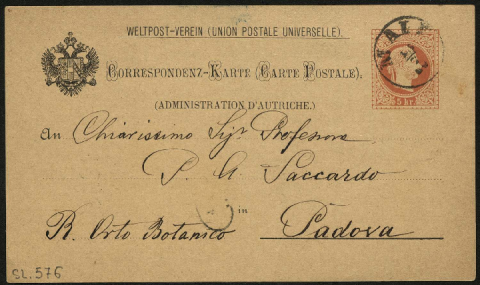 WELTPOST-VEREIN (UNION POSTALE UNIVERSELLE).
CORRESPONDENZ-KARTE (CARTE POSTALE).
(ADMINISTRATION D'AUTRICHE.)
An Chiarissimo Sigr Professore
P. A. Saccardo
in
R. Orto Botanico Padova
5 kr.
SL. 576